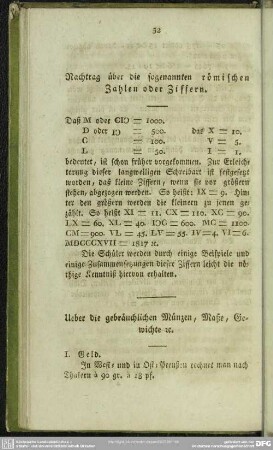 32
Nachtrag über die sogenannten römischen
Zahlen oder Ziffern.
Daß M oder CIↃ = 1000.
D oder IↃ = 500. das X = 10.
C = 100. V = 5.
L = 50. I = 1.
bedeutet, ist schon früher vorgekommen. Zur Erleich-
terung dieser langweiligen Schreibart ist festgesetzt
worden, daß kleine Ziffern, wenn sie vor größern
stehen, abgezogen werden. So heißt: IX = 9. Hin-
ter den größern werden die kleinern zu jenen ge-
zählt. So heißt XI = 11, CX = 110. XC = 90.
LX = 60, XL = 40. IDC = 600. MC = 1100.
CM = 900. VL = 45. LV = 55. IV = 4. VI = 6.
MDCCCXVII = 1817 ꝛc.
Die Schüler werden durch einige Beispiele und
einige Zusammensetzungen dieser Ziffern leicht die nö-
thige Kenntniß hiervon erhalten.
Ueber die gebräuchlichen Münzen, Maße, Ge-
wichte ꝛc.
I. Geld.
In West- und in Ost-Preußen rechnet man nach
Thalern à 90 gr. à 18 pf.